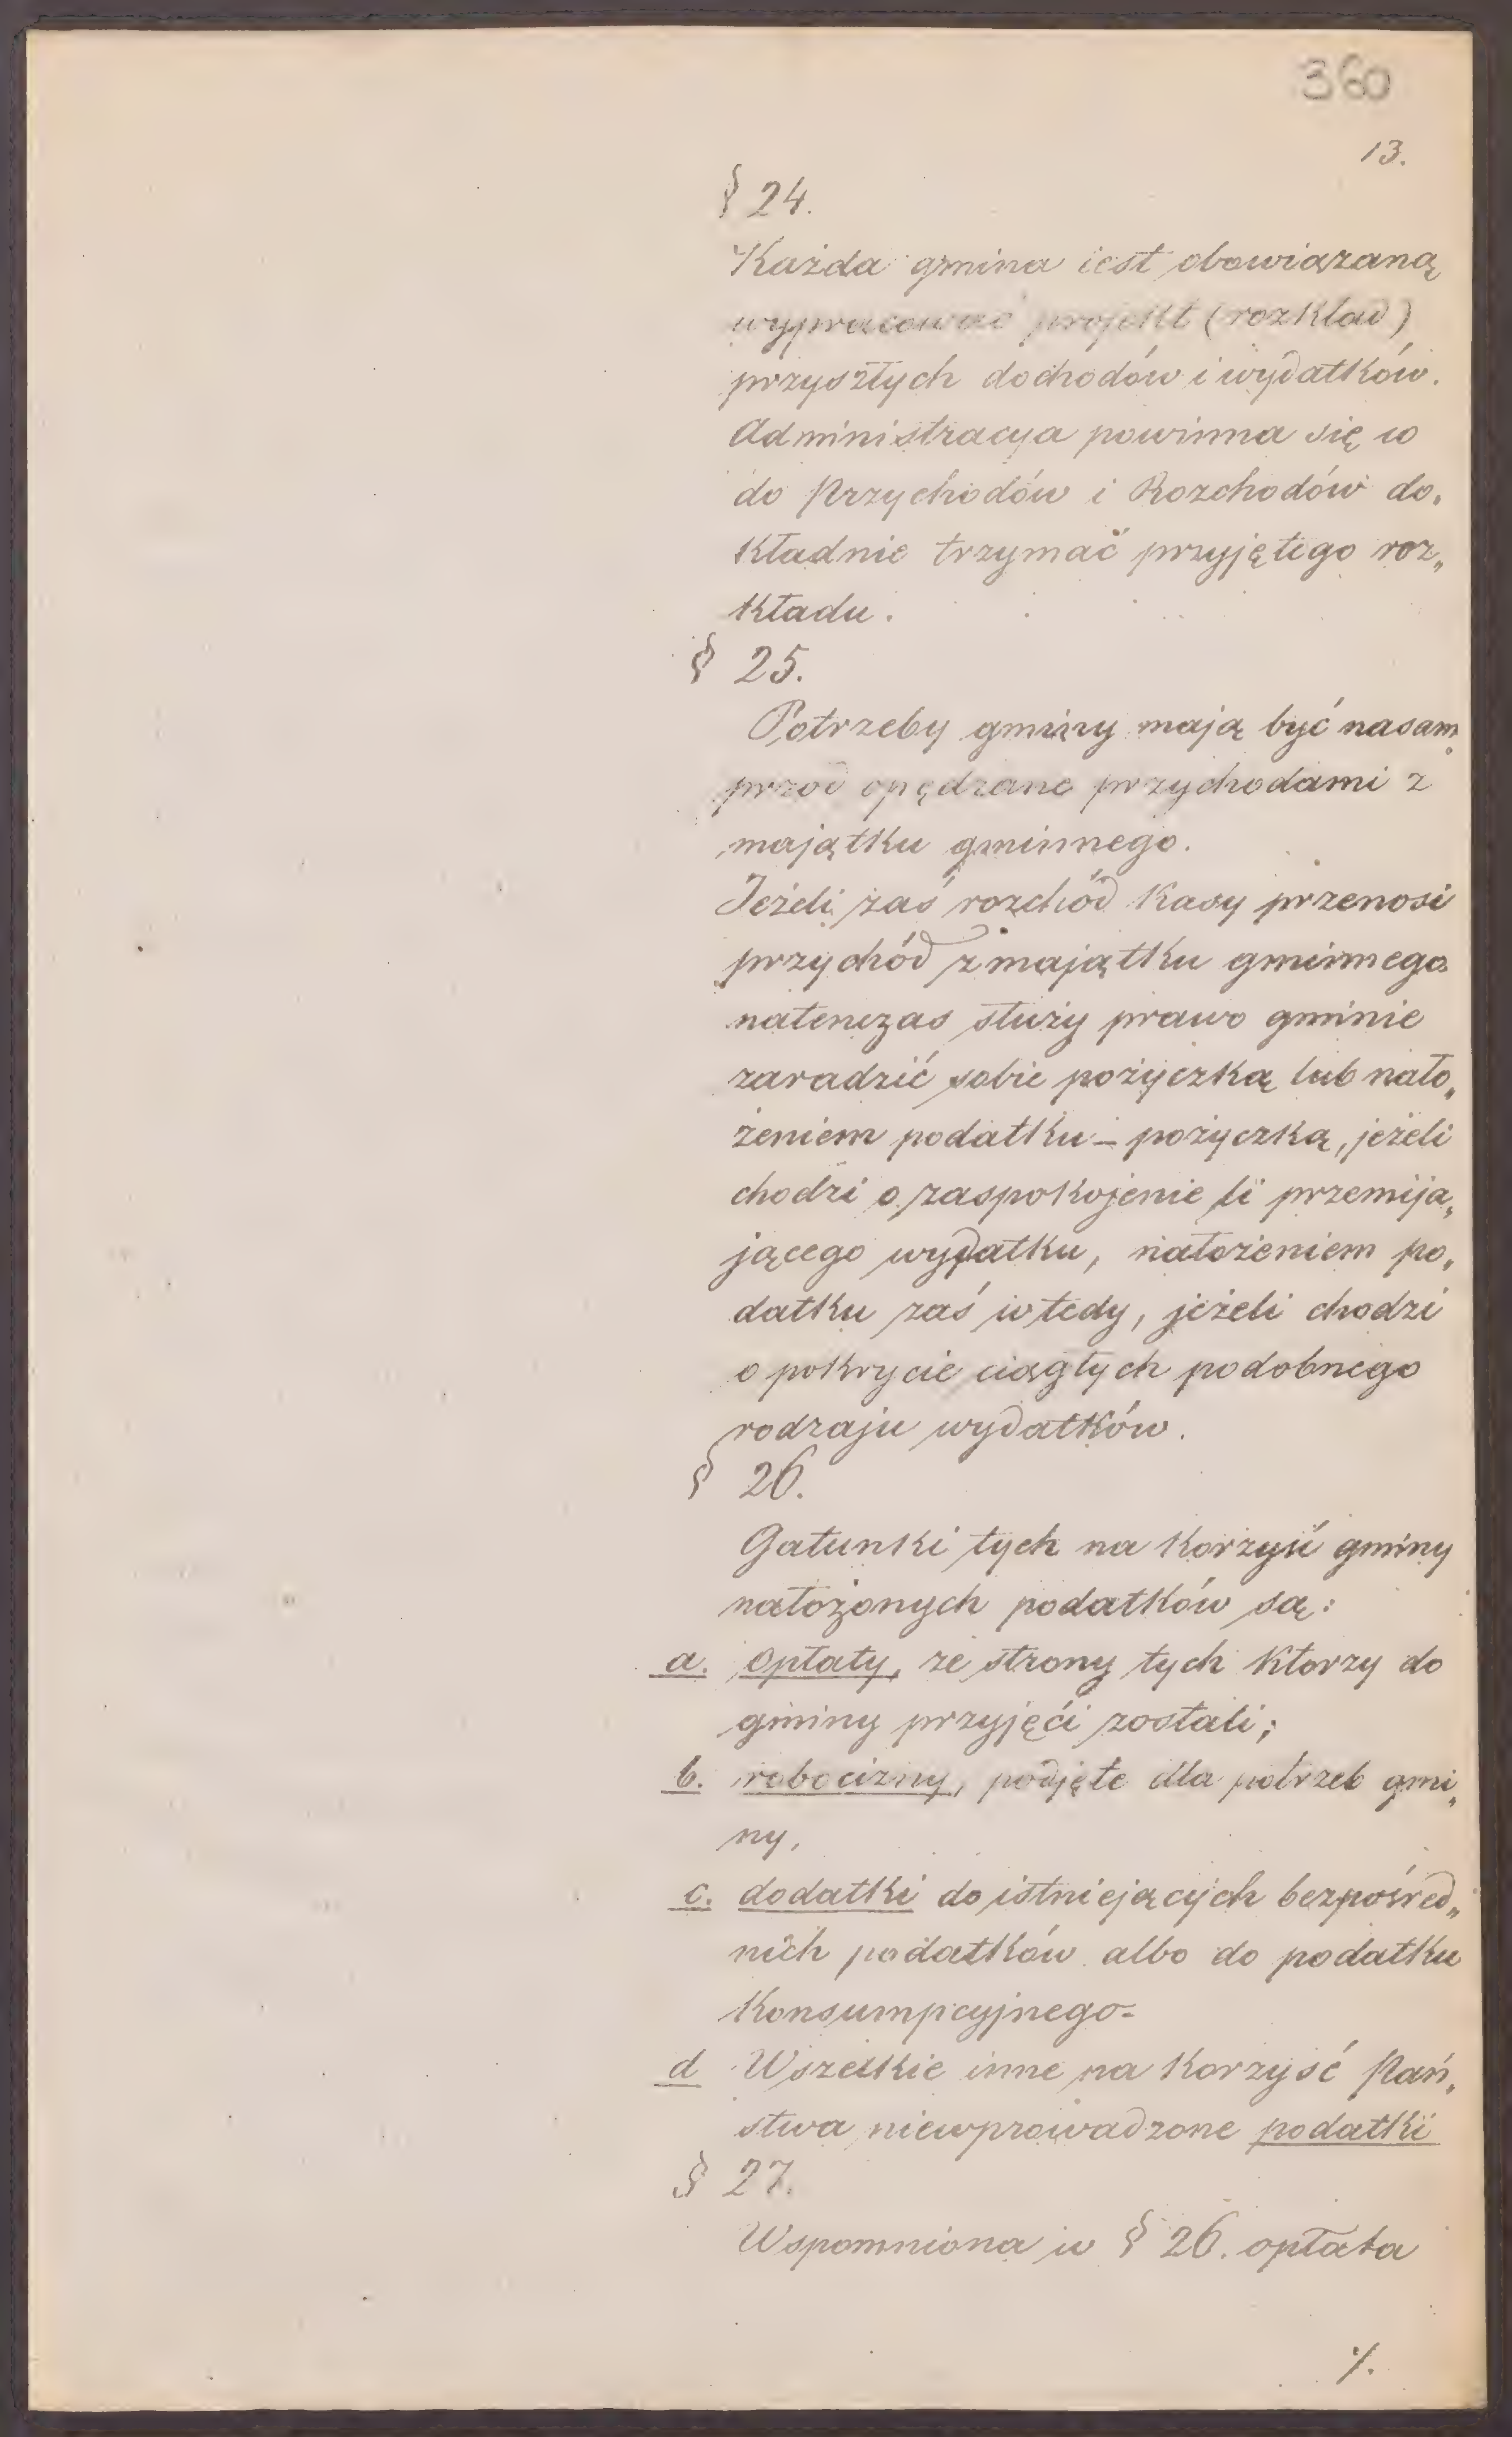 360
13.
§ 24.
Każda gmina iest obowiązaną
wypracować projekt (rozkład)
przyszłych dochodów i wydatków.
Administracya powinna się co
do Przychodów i Rozchodów do„
kładnie trzymać przyjętego roz„
kładu.
§ 25.
Potrzeby gminy mają być nasam„
przód opędzane przychodami z
majątku gminnego.
Jeżeli zaś rozchód Kasy przenosi
przychód z majątku gminnego
natenczas służy prawo gminie
zaradzić sobie pożyczką lub nało„
żeniem podatku – pożyczką, jeżeli
chodzi o zaspokojenie li przemija„
jącego wydatku, nałożeniem po„
datku zaś wtedy, jeżeli chodzi
o pokrycie ciągłych podobnego
rodzaju wydatków.
§ 26.
Gatunki tych na korzyść gminy
nałożonych podatków są:
a. opłaty, ze strony tych którzy do
gminy przyjęći zostali;
b. robocizny, podjęte dla potrzeb gmi„
ny,
c. dodatki do istniejących bezpośred„
nich podatków albo do podatku
Konsumpcyjnego-
d Wszelkie inne na korzyść Pań„
stwa niewprowadzone podatki
§ 27.
Wspomniona w § 26. opłata
./.